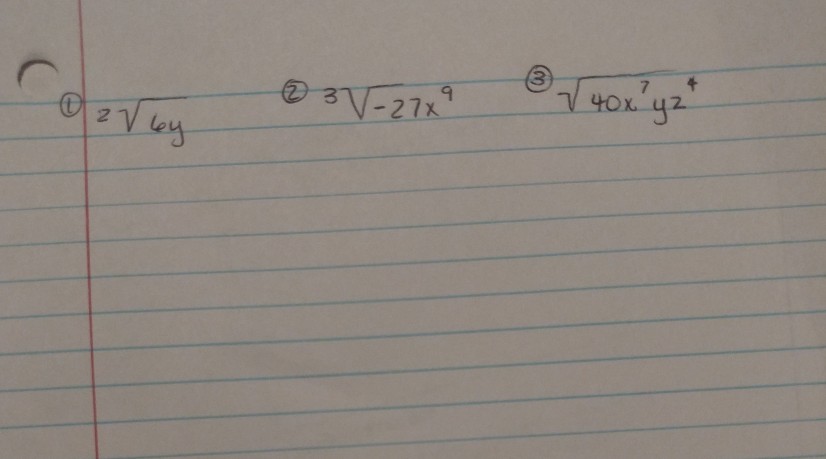 ① ²√6y ② ³√-27x⁹ ③ √40x⁷yz⁴